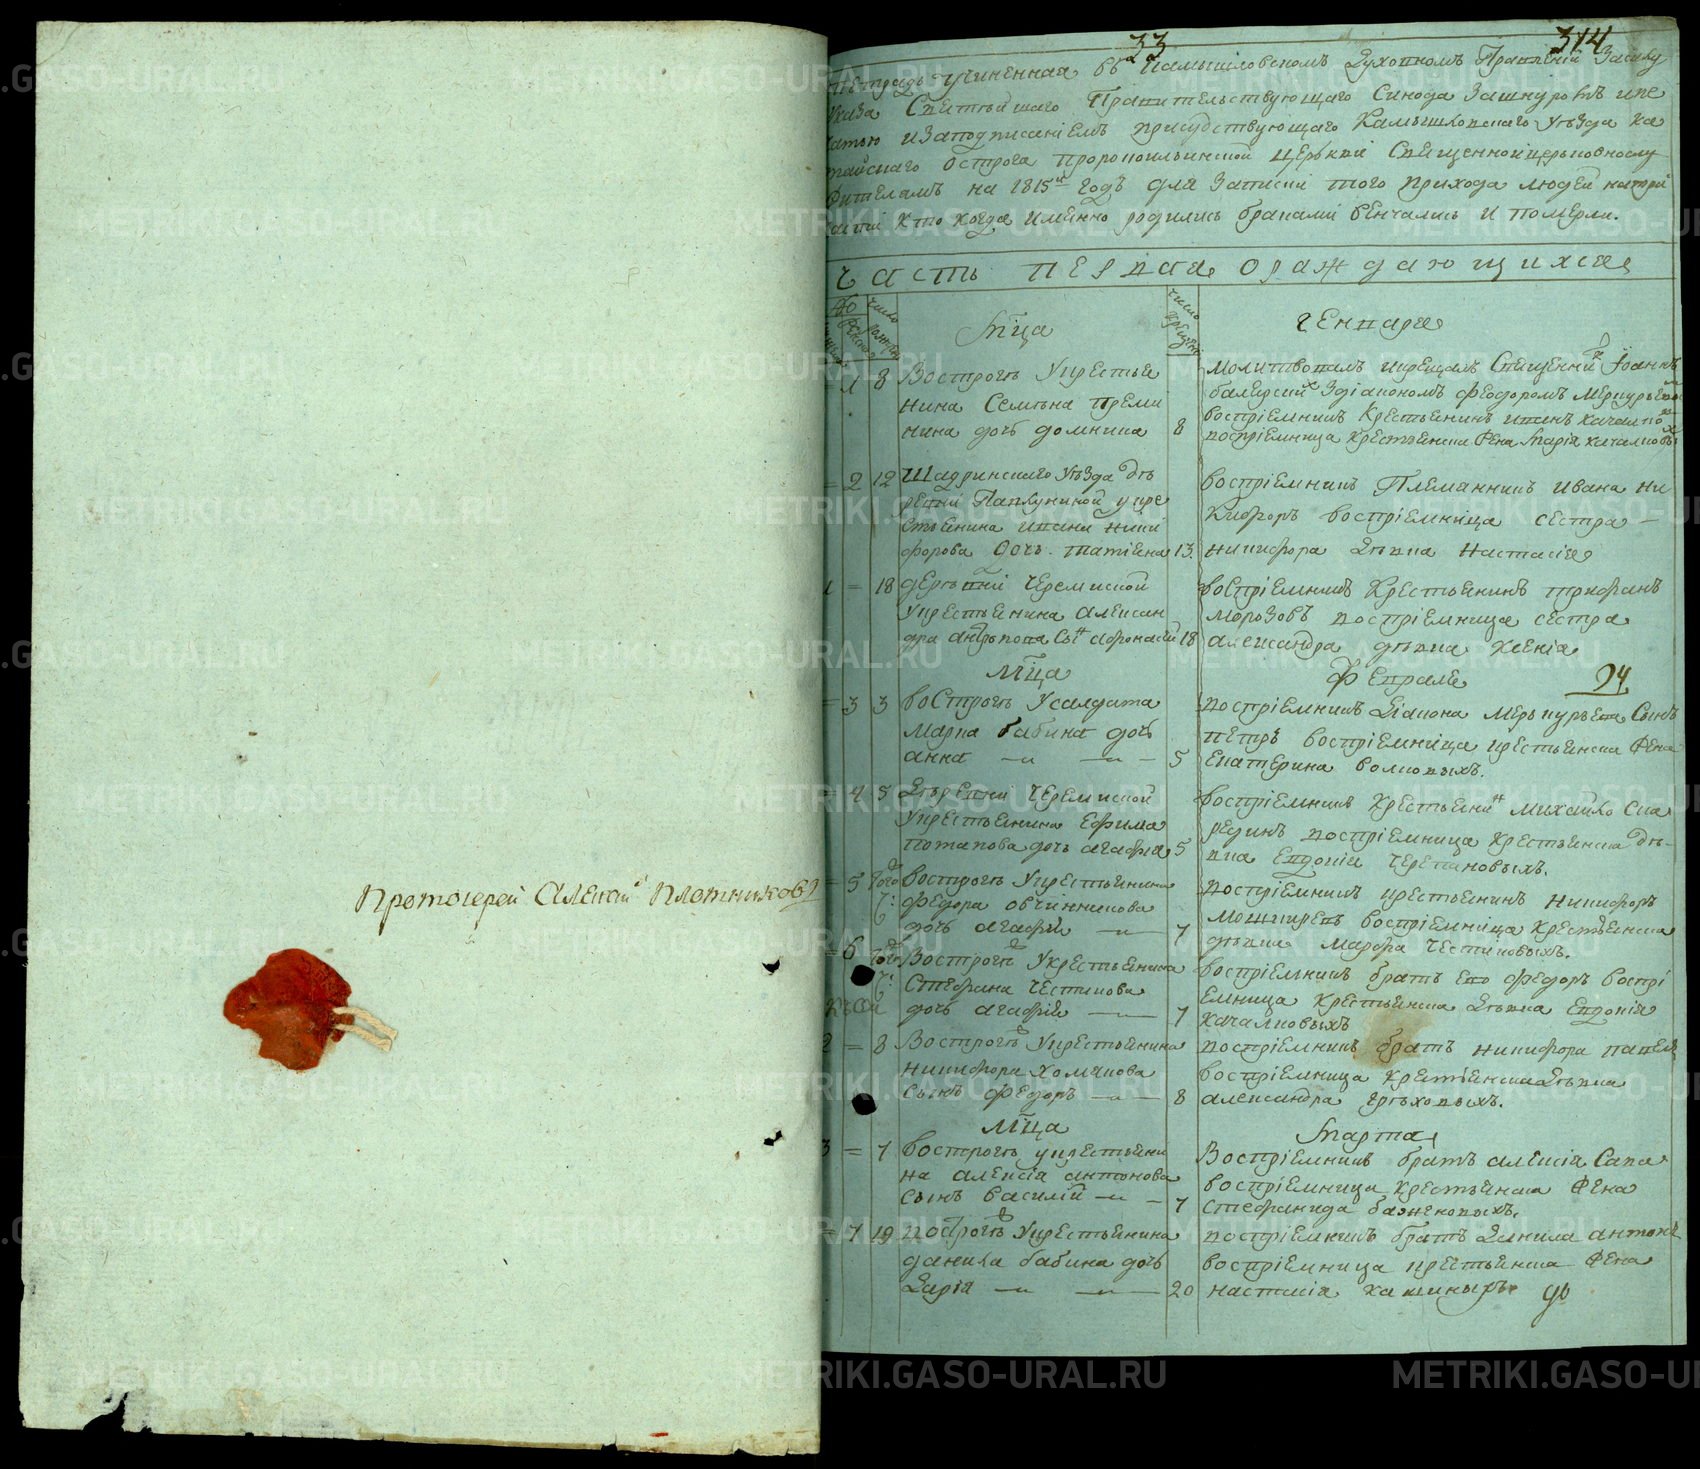 Протоіерей Алексій Плотниковъ
33
314
Тетрадь учиненная въ Камышловскомъ Духовномъ Правленіи Засилу
Указа Святѣйшаго Правительствующаго Синода Зашнуромъ ипе
чатью изаподписаніемъ присудствующаго Камышловскаго Уѣзда Ка
тайскаго Острога пророкоильинской церькви Священноицерьковнослу
жителамъ на 1815й Годъ для Записки того прихода людей
кто когда именно родились браками венчались и померли.
Часть первая ораждающихся
число рожден
Мца
число крещен
Генваря
1 8 Востроге Укрестья
нина Семена Преми
нина дочь домнина 8
Молитвовалъ икрещалъ Священни Іоаннъ
здіакономъ Феодоромъ Меркурьевы
воспріемникъ Крестьянинъ иванъ Качалко
воспріемница крестьянска жена Марія качалковы
2 12 Шадринскаго Уѣзда Де
ревни Папкуниной укре
стьянина ивана ники
форова дочь татіяна 13
воспріемникъ Племянникъ Ивана Ни
кифоръ воспріемница сестра
никифора Дѣвка Настасія
1 = 18 деревни Черемиской
Укрестьянина Алексан
дра антропова Сынъ афонасій 18
воспріемникъ Крестьянинъ трифанъ
Морозовъ воспріемница сестра
александра девка Ксенія
Мца
Февраля
94
= 3 3 воСтроге Усалдата
Марка бабина дочь
анна 5
воспріемникъ Діакона Меркурьева Сынъ
петръ воспріемница крестьянска жена
Екатерина волковыхъ.
= 4 5 Деревни Черемиской
Укрестьянина Ефима
потапова дочь агафія 5
воспріемникъ Крестьянинъ Михайло Ска
рединъ воспріемница Крестьянска Дѣ
вка Евдокія Черепановыхъ.
= 5 того Востроге Укрестьянина
ч: Федора овчинникова
дочь агафія 7
воспріемникъ крестьянинъ никифоръ
воспріемница Крестьянска
девка Марфа Честиковыхъ.
= 6 того Востроге Укрестьянина
ч: Стефана Честикова
дочь агафія 7
воспріемникъ братъ Его Федоръ воспрі
емница Крестьянска Дѣвка Евдокія
Качалковыхъ
2 = 8 Востроге Укрестьянина
никифора Хомякова
сынъ Федоръ 8
воспріемникъ братъ никифора павелъ
воспріемница Крестьянска Дѣвка
александра Ергаховыхъ.
Мца
Марта
3 = 7 Востроге укрестьяни
на алексія антонова
сынъ василій 7
Воспріемникъ братъ алексія Сава
воспріемница крестьянска жена
Стефанида баженовыхъ.
= 7 19 востроге Укрестьянина
данила бабина дочь
Дарія 20
воспріемникъ братъ Данила антонъ
воспріемница крестьянска жена
настасія
METRIKI.GASO-URAL.RU